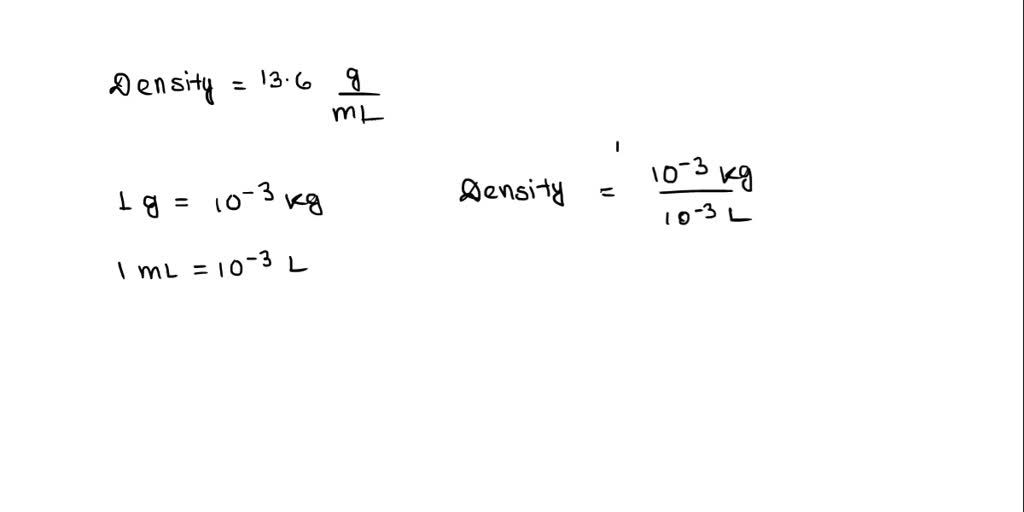 Density = 13.6 g/mL
1 g = 10⁻³ kg
1 mL = 10⁻³ L
Density = 10⁻³ kg / 10⁻³ L